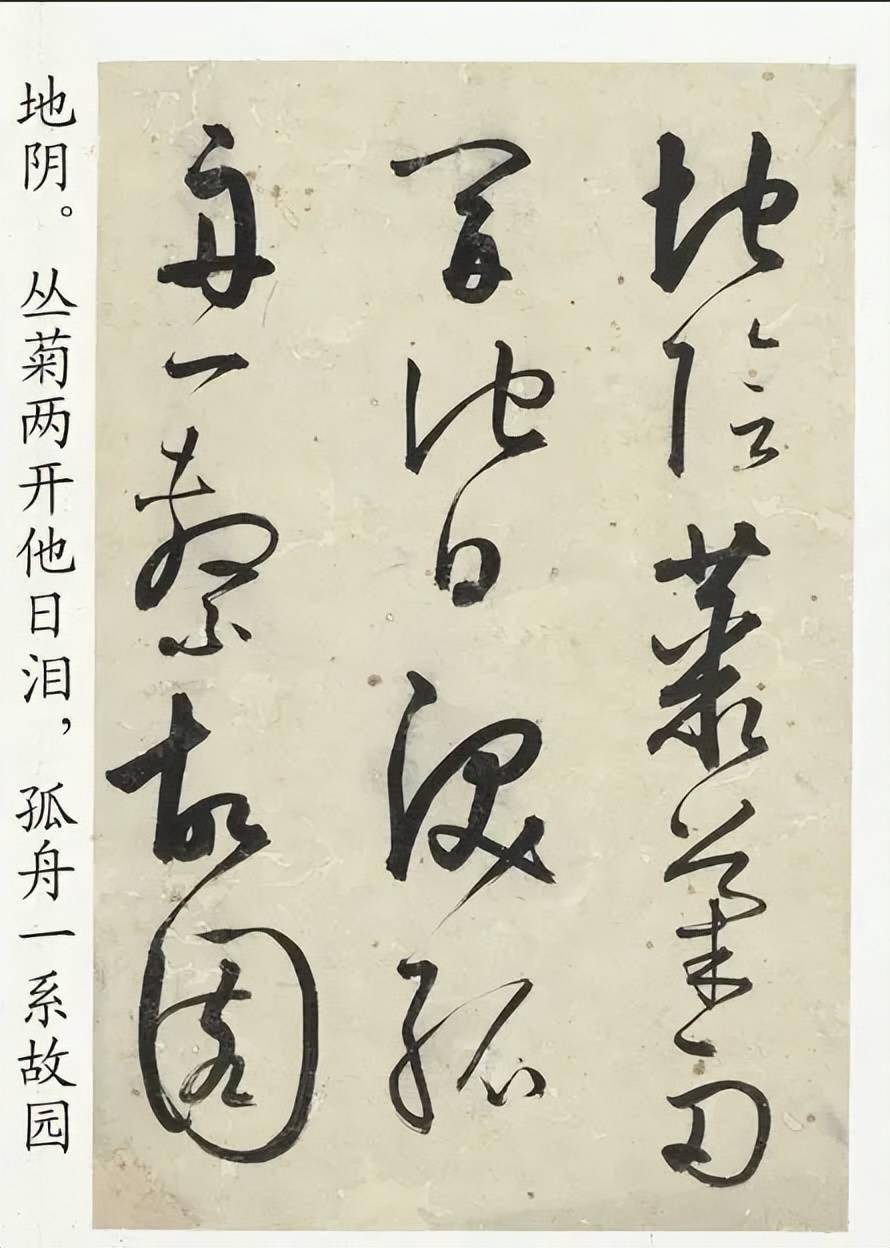 地阴。丛菊两开他日泪，孤舟一系故园
地陰叢菊两
開他日淚孤
舟一繫故園